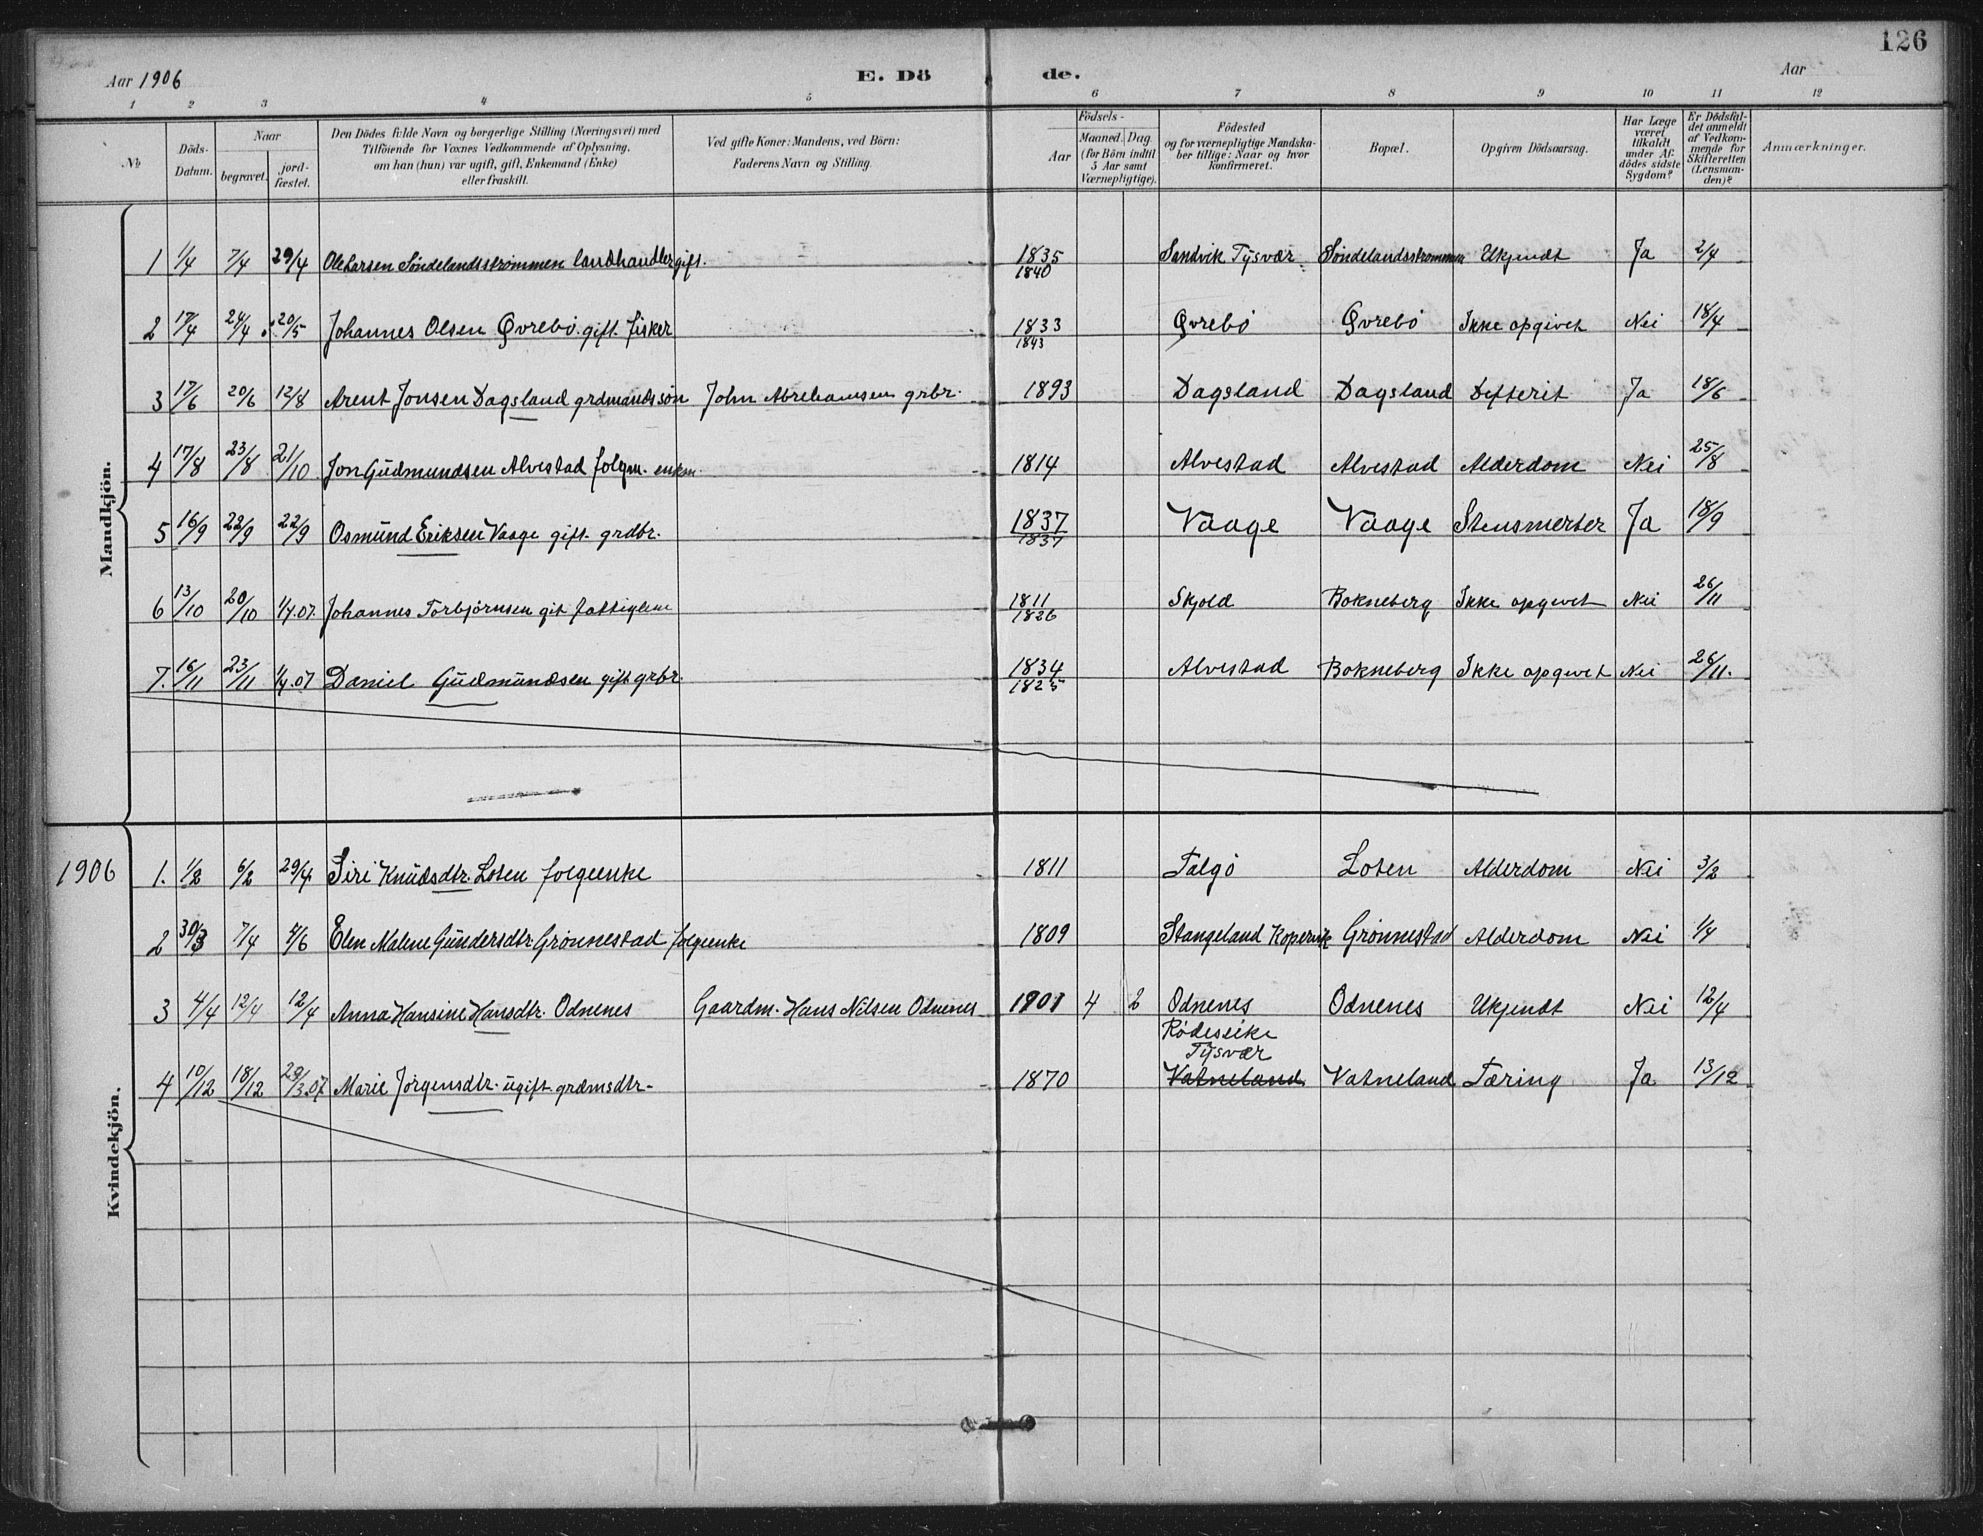 126
Aar 1906 E. Dö de. Aar
1 2 3 4 5 6 7 8 9 10 11 12
No
Döds-Datum.
Naar
begravet.
jord-fæstet.
Den Dödes fulde Navn og borgerlige Stilling (Næringsvei) med
Tilföiende for Voxnes Vedkommende af Oplysning,
om han (hun) var ugift, gift, Enkemand (Enke)
eller fraskilt.
Ved gifte Koner: Mandens, ved Börn:
Faderens Navn og Stilling.
Födsels-
Aar
Maaned. Dag.
(for Börn indtil
5 Aar samt
Værnepligtige).
Födested
og for værnepligtige Mandska-
ber tillige: Naar og hvor
konfirmeret.
Bopæl.
Opgiven Dödsaarsag.
Har Læge
været
tilkaldt
under Af-
dödes sidste
Sygdom?
Er Dödsfal-
det anmeldt
af Vedkom-
mende for
Skifteretten
(Lensman-
den)?
Anmærkninger.
Mandkjön.
1 1/4 7/4 29/4 Ole Larsen Söndelandsströmmen landhandler gift. 1835 Sandvik Tysvær Söndelandsstrommen Ukjendt Ja 2/4
1840
2 17/4 24/4 20/5 Johannes Olsen Øvrebö gift fisker 1833 Øvrebö Øvrebö Ikke opgivet Nei 18/4
1843
3 17/6 20/6 12/8 Arent Jonsen Dagsland grdmandssön John Abrehamsen grbr. 1893 Dagsland Dagsland Difterit Ja 18/6
4 17/8 23/8 21/10 Jon Gudmundsen Alvestad folgm. enkm. 1814 Alvestad Alvestad Alderdom Nei 25/8
5 16/9 22/9 22/9 Osmund Eriksen Vaage gift grdbr. 1837 Vaage Vaage Stensmerter Ja 18/9
1837
6 13/10 20/10 1/4.07 Johannes Torbjörnsen gift fattiglem 1811 Skjold Bokneberg Ikke opgivet Nei 26/11
1826
7. 16/11 23/11 1/4.07 Daniel Gudmundsen gift grbr. 1834 Alvestad Bokneberg Ikke opgivet Nei 26/11.
1825
1906
Kvindekjön.
1. 1/2 6/2 29/4 Siri Knudsdtr. Loten folgeenke 1811 Talgö Loten Alderdom Nei 3/2
2 30/3 7/4 4/6 Elen Malene Gundersdtr. Grönnestad folgeenke 1809 Stangeland Kopervik Grönnestad Alderdom Nei 1/4
3 4/4 12/4 12/4 Anna Hansine Hansdtr. Odnenes Gaardm. Hans Nilsen Odnenes 1901 4 2 Odnenes Odnenes Ukjendt Nei 12/4
Rödesike
Tysvær
4 10/12 18/12 29/3.07 Marie Jörgensdtr. ugift grdmsdtr. 1870 Vatneland Vatneland Tæring Ja 13/12